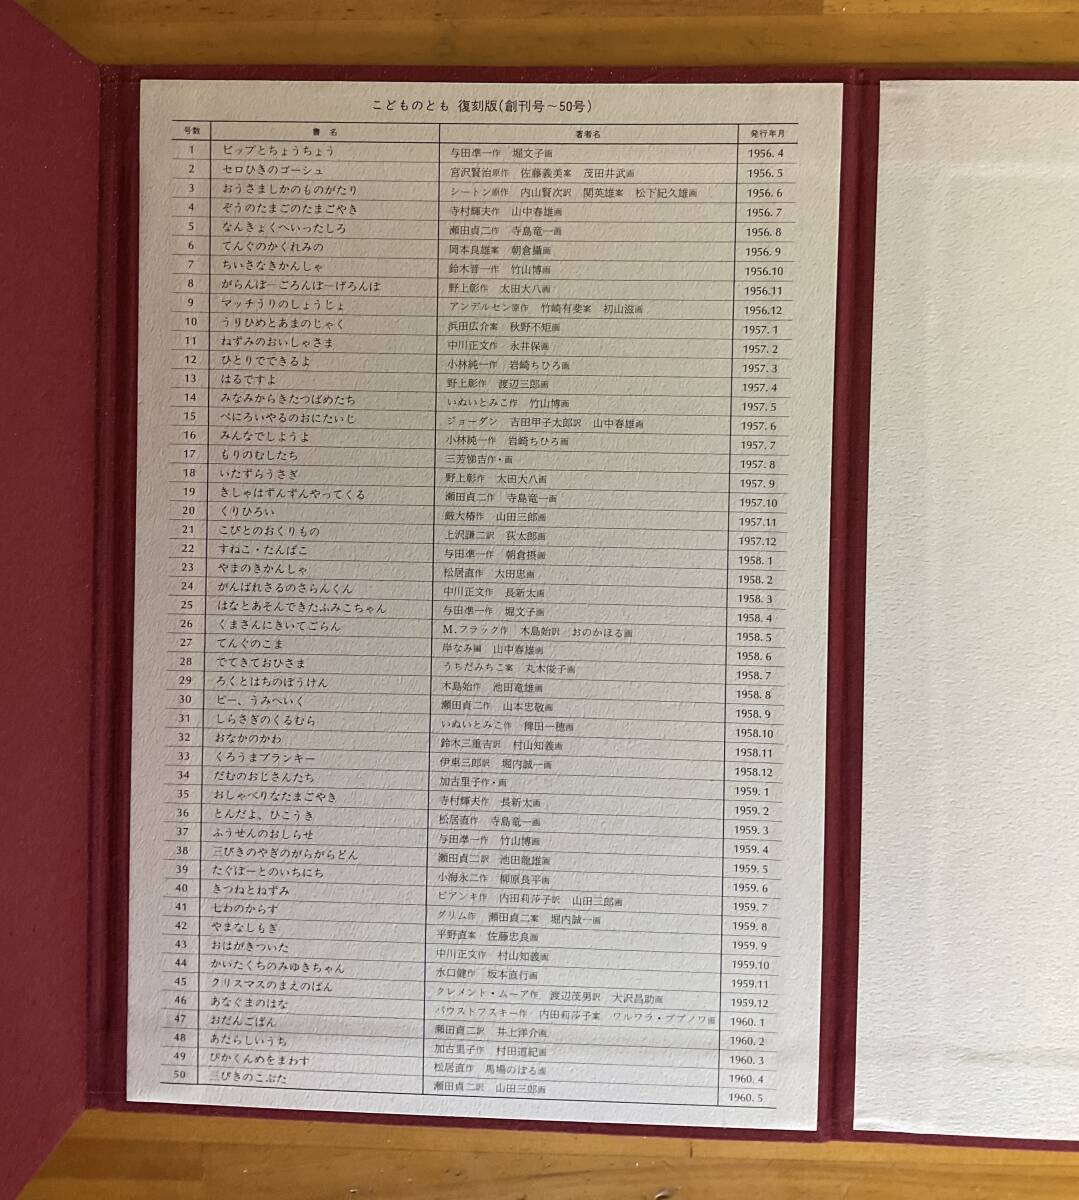 こどものとも 復刻版(創刊号～50号)
号数 書名 著者名 発行年月
1 ビップとちょうちょう 与田凖一作 堀文子画 1956. 4
2 セロひきのゴーシュ 宮沢賢治原作 佐藤義美案 茂田井武画 1956. 5
3 おうさましかのものがたり シートン原作 内山賢次訳 関英雄案 松下紀久雄画 1956. 6
4 ぞうのたまごのたまごやき 寺村輝夫作 山中春雄画 1956. 7
5 なんきょくへいったしろ 瀬田貞二作 寺島竜一画 1956. 8
6 てんぐのかくれみの 岡本良雄案 朝倉摂画 1956. 9
7 ちいさなきかんしゃ 鈴木晋一作 竹山博画 1956.10
8 がらんぼーごろんぼーげろんぼ 野上彰作 太田大八画 1956.11
9 マッチうりのしょうじょ アンデルセン原作 竹崎有斐案 初山滋画 1956.12
10 うりひめとあまのじゃく 浜田広介案 秋野不矩画 1957. 1
11 ねずみのおいしゃさま 中川正文作 永井保画 1957. 2
12 ひとりでできるよ 小林純一作 岩崎ちひろ画 1957. 3
13 はるですよ 野上彰作 渡辺三郎画 1957. 4
14 みなみからきたつばめたち いぬいとみこ作 竹山博画 1957. 5
15 ぺにろいやるのおにたいじ ジョーダン 吉田甲子太郎訳 山中春雄画 1957. 6
16 みんなでしようよ 小林純一作 岩崎ちひろ画 1957. 7
17 もりのむしたち 三芳悌吉作・画 1957. 8
18 いたずらうさぎ 野上彰作 太田大八画 1957. 9
19 きしゃはずんずんやってくる 瀬田貞二作 寺島竜一画 1957.10
20 くりひろい 厳大椿作 山田三郎画 1957.11
21 こびとのおくりもの 上沢謙二訳 荻太郎画 1957.12
22 すねこ・たんぱこ 与田凖一作 朝倉摂画 1958. 1
23 やまのきかんしゃ 松居直作 大田忠画 1958. 2
24 がんばれさるのさらんくん 中川正文作 長新太画 1958. 3
25 はなとあそんできたふみこちゃん 与田凖一作 堀文子画 1958. 4
26 くまさんにきいてごらん M.フラック作 木島始訳 おのかほる画 1958. 5
27 てんぐのこま 岸なみ編 山中春雄画 1958. 6
28 でてきておひさま うちだみちこ案 丸木俊子画 1958. 7
29 ろくとはちのぼうけん 木島始作 池田竜雄画 1958. 8
30 ピー、うみへいく 瀬田貞二作 山本忠敬画 1958. 9
31 しらさぎのくるむら いぬいとみこ作 稗田一穂画 1958.10
32 おなかのかわ 鈴木三重吉訳 村山知義画 1958.11
33 くろうまブランキー 伊東三郎訳 堀内誠一画 1958.12
34 だむのおじさんたち 加古里子作・画 1959. 1
35 おしゃべりなたまごやき 寺村輝夫作 長新太画 1959. 2
36 とんだよ、ひこうき 松居直作 寺島竜一画 1959. 3
37 ふうせんのおしらせ 与田凖一作 竹山博画 1959. 4
38 三びきのやぎのがらがらどん 瀬田貞二訳 池田龍雄画 1959. 5
39 たぐぼーとのいちにち 小海永二作 柳原良平画 1959. 6
40 きつねとねずみ ビアンキ作 内田莉莎子訳 山田三郎画 1959. 7
41 七わのからす グリム作 瀬田貞二案 堀内誠一画 1959. 8
42 やまなしもぎ 平野直案 佐藤忠良画 1959. 9
43 おはがきついた 中川正文作 村山知義画 1959.10
44 かいたくちのみゆきちゃん 水口健作 坂本直行画 1959.11
45 クリスマスのまえのばん クレメント・ムーア作 渡辺茂男訳 大沢昌助画 1959.12
46 あなぐまのはな パウストフスキー作 内田莉莎子案 ワルワラ・ブブノワ画 1960. 1
47 おだんごぱん 瀬田貞二訳 井上洋介画 1960. 2
48 あたらしいうち 加古里子作 村田道紀画 1960. 3
49 ぴかくんめをまわす 松居直作 馬場のぼる画 1960. 4
50 三びきのこぶた 瀬田貞二訳 山田三郎画 1960. 5